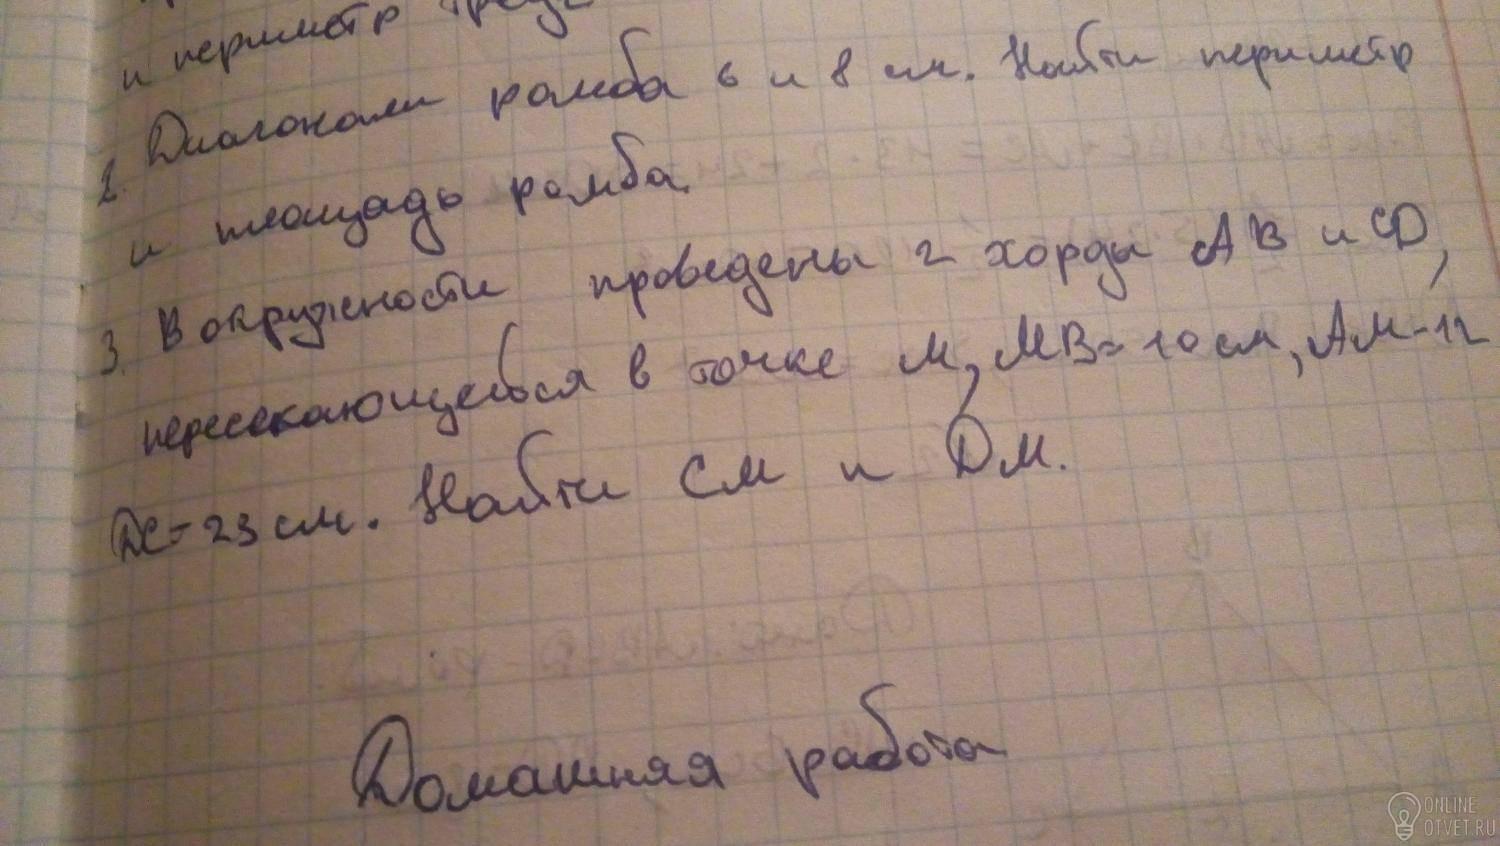 и периметр
2. Диагонали ромба 6 и 8 см. Найти периметр
и площадь ромба.
3. В окружности проведены 2 хорды AB и CD,
пересекающиеся в точке M, MB=10 см, AM-12
DC=23 см. Найти CM и DM.
Домашняя работа
ONLINE
OTVET.RU